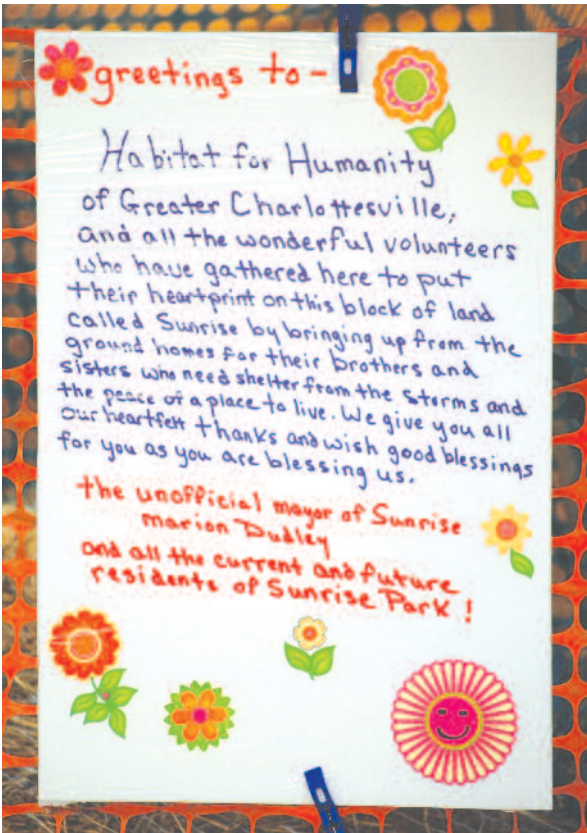 greetings to -
Habitat for Humanity
of Greater Charlottesville,
and all the wonderful volunteers
who have gathered here to put
their heartprint on this block of land
called Sunrise by bringing up from the
ground homes for their brothers and
sisters who need shelter from the storms and
the peace of a place to live. We give you all
our heartfelt thanks and wish good blessings
for you as you are blessing us.
the unofficial mayor of Sunrise
marion Dudley
and all the current and future
residents of Sunrise Park!